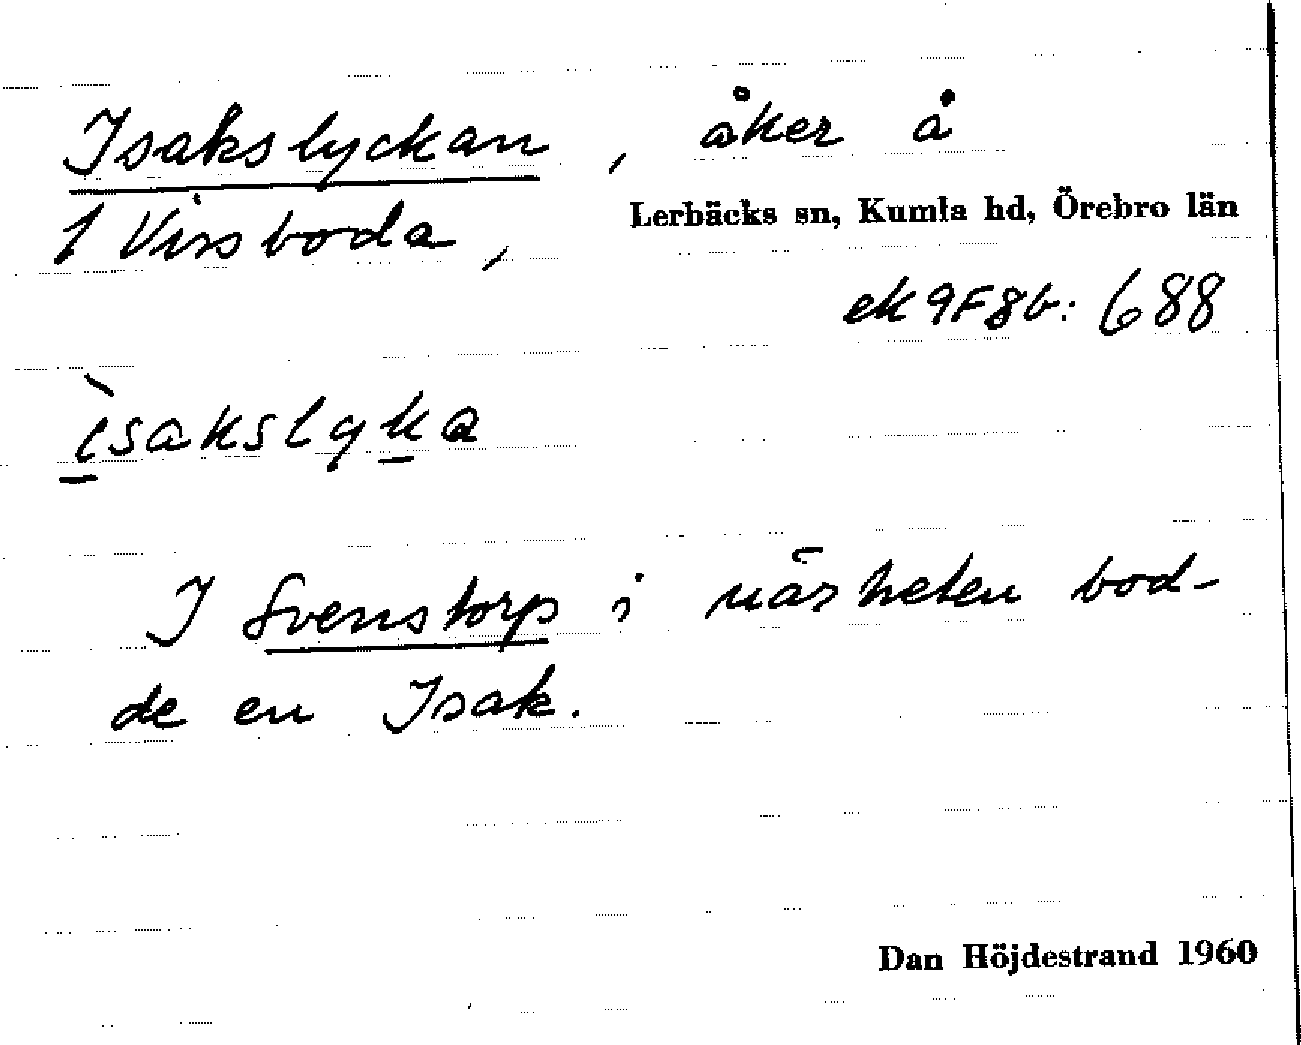 Isakslyckan, åker å
1 Vissboda, Lerbäcks sn, Kumla hd, Örebro län
ek 9F8b: 688
ìsakslyka
I Svenstorp i närheten bod-
de en Isak.
Dan Höjdestrand 1960